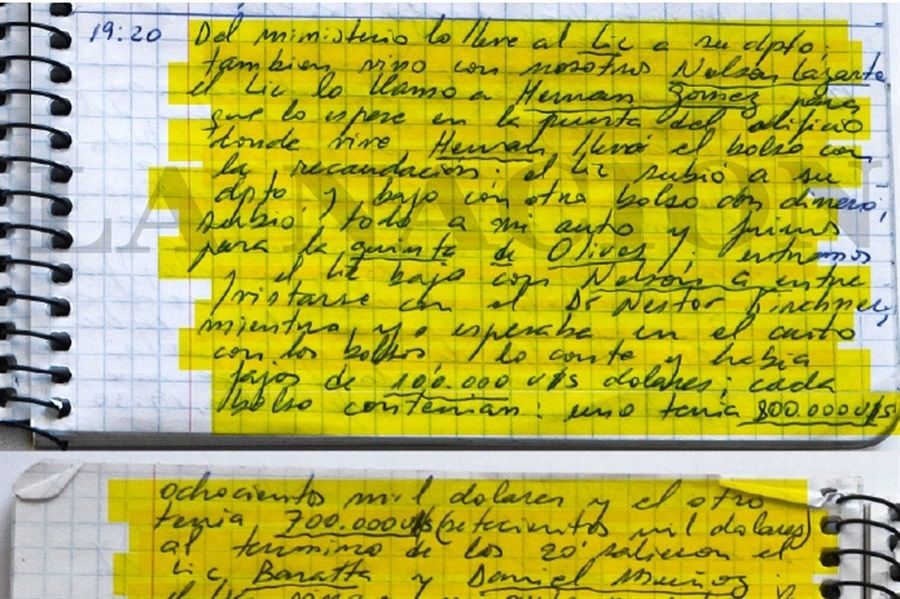 19:20 Del ministerio lo lleve al Lic a su dpto;
tambien vino con nosotros Nelson Lazarte
el Lic lo llamo a Hernan Gomez para
que lo espere en la puerta del edificio
donde vive, Hernan llevó el bolso con
la recaudación; el Lic subió a su
dpto y bajo con otro bolso con dinero,
subió todo a mi auto y fuimos
para la quinta de Olivos; entramos
y el Lic bajo con Nelson a entre
vistarse con el Dr Nestor Kirchner,
mientras yo esperaba en el auto
con los bolsos, lo conte y habia
fajos de 100.000 u$s dolares; cada
bolso contenian: uno tenia 800.000u$s
ochocientos mil dolares y el otro
tenia 700.000u$s (setecientos mil dolares)
al termino de los 20' salieron el
Lic Baratta y Daniel Muñoz
el Lic
LA NACION